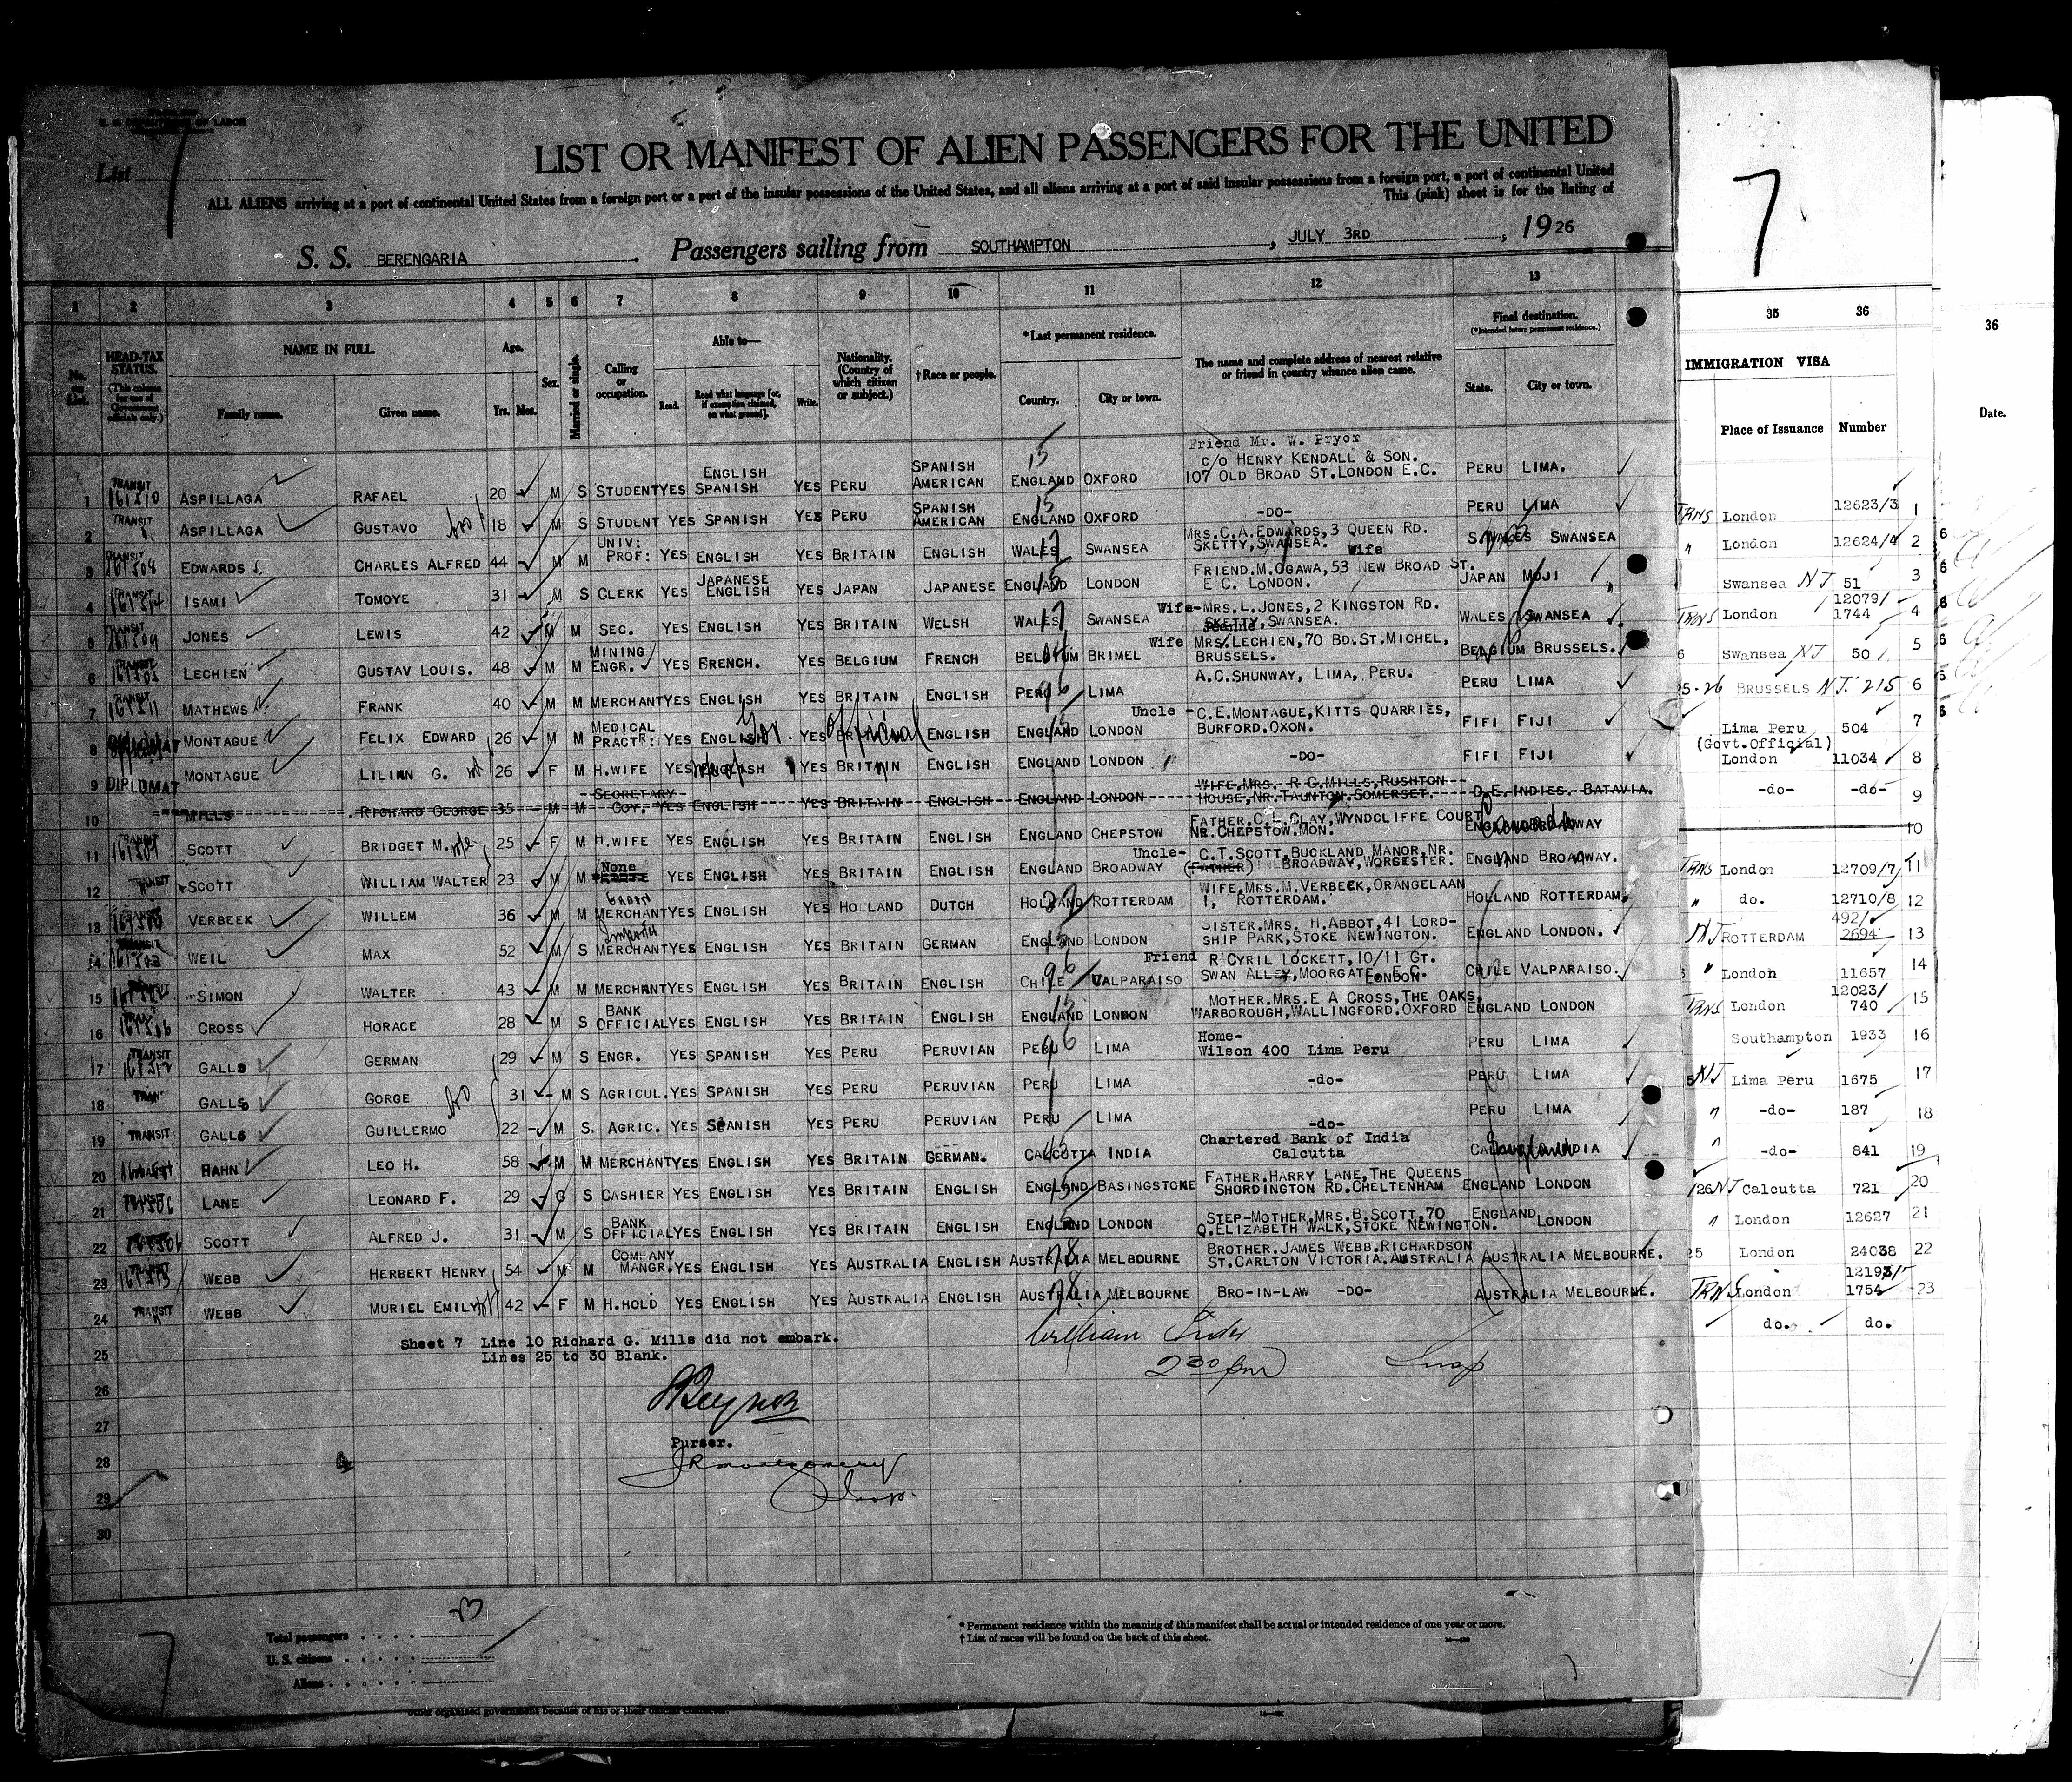 U. S. DEPARTMENT OF LABOR
List 7
LIST OR MANIFEST OF ALIEN PASSENGERS FOR THE UNITED
ALL ALIENS arriving at a port of continental United States from a foreign port or a port of the insular possessions of the United States, and all aliens arriving at a port of said insular possessions from a foreign port, a port of continental United
This (pink) sheet is for the listing of
S. S. BERENGARIA. Passengers sailing from SOUTHAMPTON, JULY 3RD, 1926
7
1 2 3 4 5 6 7 8 9 10 11 12 13 35 36 36
No. on List.
HEAD-TAX STATUS. (This column for use of Government officials only.)
NAME IN FULL. Family name. Given name.
Age. Yrs. Mos.
Sex.
Married or single.
Calling or occupation.
Able to— Read. Read what language [or, if exemption claimed, on what ground]. Write.
Nationality. (Country of which citizen or subject.)
†Race or people.
*Last permanent residence. Country. City or town.
The name and complete address of nearest relative or friend in country whence alien came.
Final destination. (*Intended future permanent residence.) State. City or town.
IMMIGRATION VISA Place of Issuance Number Date.
1 TRANSIT ASPILLAGA RAFAEL 20 M S STUDENT YES ENGLISH SPANISH YES PERU SPANISH AMERICAN ENGLAND 15 OXFORD Friend Mr. W. Pryor c/o HENRY KENDALL & SON. 107 OLD BROAD ST.LONDON E.C. PERU LIMA.
2 TRANSIT ASPILLAGA GUSTAVO bro 18 M S STUDENT YES SPANISH YES PERU SPANISH AMERICAN ENGLAND 15 OXFORD -DO- PERU LIMA
3 TRANSIT EDWARDS CHARLES ALFRED 44 M M UNIV: PROF: YES ENGLISH YES BRITAIN ENGLISH WALES SWANSEA MRS.C.A.EDWARDS,3 QUEEN RD. SKETTY,SWANSEA. Wife S.WALES SWANSEA
4 TRANSIT ISAMI TOMOYE 31 M S CLERK YES JAPANESE ENGLISH YES JAPAN JAPANESE ENGLAND 15 LONDON FRIEND.M.OGAWA,53 NEW BROAD ST. E.C. LONDON. JAPAN MOJI
5 TRANSIT JONES LEWIS 42 M M SEC. YES ENGLISH YES BRITAIN WELSH WALES SWANSEA Wife-MRS.L.JONES,2 KINGSTON RD. SKETTY,SWANSEA. WALES SWANSEA
6 TRANSIT LECHIEN GUSTAV LOUIS. 48 M M MINING ENGR. YES FRENCH. YES BELGIUM FRENCH BELGIUM BRIMEL Wife MRS.LECHIEN,70 BD.ST.MICHEL, BRUSSELS. BELGIUM BRUSSELS.
7 TRANSIT MATHEWS FRANK 40 M M MERCHANT YES ENGLISH YES BRITAIN ENGLISH PERU 96 LIMA A.C.SHUNWAY, LIMA, PERU. PERU LIMA
8 DIPLOMAT MONTAGUE FELIX EDWARD 26 M M MEDICAL PRACTR: YES ENGLISH Gov. YES BRITAIN Official ENGLISH ENGLAND 15 LONDON Uncle -C.E.MONTAGUE,KITTS QUARRIES, BURFORD.OXON. FIFI FIJI
9 DIPLOMAT MONTAGUE LILIAN G. wf 26 F M H.WIFE YES ENGLISH YES BRITAIN ENGLISH ENGLAND LONDON -DO- FIFI FIJI
10 MILLS RICHARD GEORGE 35 M M SECRETARY COY. YES ENGLISH YES BRITAIN ENGLISH ENGLAND LONDON WIFE.MRS. R G.MILLS,RUSHTON HOUSE,NR.TAUNTON.SOMERSET. D.E.INDIES. BATAVIA.
11 TRANSIT SCOTT BRIDGET M. wfe 25 F M H.WIFE YES ENGLISH YES BRITAIN ENGLISH ENGLAND CHEPSTOW FATHER.C.L.CLAY,WYNDCLIFFE COURT NR.CHEPSTOW.MON. ENGLAND BROADWAY Canada
12 TRANSIT SCOTT WILLIAM WALTER 23 M M None YES ENGLISH YES BRITAIN ENGLISH ENGLAND BROADWAY Uncle- C.T.SCOTT,BUCKLAND MANOR,NR. (FATHER) BROADWAY,WORCESTER. ENGLAND BROADWAY.
13 TRANSIT VERBEEK WILLEM 36 M M MERCHANT YES ENGLISH YES HOLLAND DUTCH HOLLAND ROTTERDAM WIFE.MRS.M.VERBEEK,ORANGELAAN 1, ROTTERDAM. HOLLAND ROTTERDAM
14 TRANSIT WEIL MAX 52 M S Importer MERCHANT YES ENGLISH YES BRITAIN GERMAN ENGLAND 15 LONDON SISTER.MRS. H.ABBOT,41 LORD- SHIP PARK,STOKE NEWINGTON. ENGLAND LONDON.
15 SIMON WALTER 43 M M MERCHANT YES ENGLISH YES BRITAIN ENGLISH CHILE 96 VALPARAISO Friend R CYRIL LOCKETT,10/11 GT. SWAN ALLEY,MOORGATE. E.C. LONDON CHILE VALPARAISO.
16 CROSS HORACE 28 M S BANK OFFICIAL YES ENGLISH YES BRITAIN ENGLISH ENGLAND 15 LONDON MOTHER.MRS.E A CROSS,THE OAKS, WARBOROUGH,WALLINGFORD.OXFORD ENGLAND LONDON
17 TRANSIT GALLO GERMAN 29 M S ENGR. YES SPANISH YES PERU PERUVIAN PERU 96 LIMA Home- Wilson 400 Lima Peru PERU LIMA
18 GALLO GORGE bro 31 M S AGRICUL. YES SPANISH YES PERU PERUVIAN PERU LIMA -do- PERU LIMA
19 TRANSIT GALLO GUILLERMO 22 M S. AGRIC. YES SPANISH YES PERU PERUVIAN PERU LIMA -do- PERU LIMA
20 RAHN LEO H. 58 M M MERCHANT YES ENGLISH YES BRITAIN GERMAN. CALCUTTA 45 INDIA Chartered Bank of India Calcutta CALCUTTA INDIA England
21 TRANSIT LANE LEONARD F. 29 G S CASHIER YES ENGLISH YES BRITAIN ENGLISH ENGLAND BASINGSTONE FATHER.HARRY LANE,THE QUEENS SHORDINGTON RD.CHELTENHAM ENGLAND LONDON
22 TRANSIT SCOTT ALFRED J. 31 M S BANK OFFICIAL YES ENGLISH YES BRITAIN ENGLISH ENGLAND 15 LONDON STEP-MOTHER,MRS.B.SCOTT,70 Q.ELIZABETH WALK,STOKE NEWINGTON. ENGLAND LONDON
23 TRANSIT WEBB HERBERT HENRY 54 M M COMPANY MANGR. YES ENGLISH YES AUSTRALIA ENGLISH AUSTRALIA 78 MELBOURNE BROTHER.JAMES WEBB.RICHARDSON ST.CARLTON VICTORIA.AUSTRALIA AUSTRALIA MELBOURNE.
24 TRANSIT WEBB MURIEL EMILY wf 42 F M H.HOLD YES ENGLISH YES AUSTRALIA ENGLISH AUSTRALIA 78 MELBOURNE BRO-IN-LAW -DO- AUSTRALIA MELBOURNE.
25
26
27
28
29
30
Sheet 7 Line 10 Richard G. Mills did not embark.
Lines 25 to 30 Blank.
William
2 30 pm
Insp
Purser.
JR Montgomery
Insp.
TRNS London 12623/3 1
" London 12624/4 2
Swansea NJ 51 3
TRNS London 12079/ 1744 4
Swansea NJ 50 5
5-26 BRUSSELS NJ. 215 6
Lima Peru 504 7
(Govt.Official) London 11034 8
-do- -do- 9
10
TRNS London 12709/7 11
" do. 12710/8 12
NJ ROTTERDAM 492/ 2694 13
" London 11657 14
TRNS London 12023/ 740 15
Southampton 1933 16
NJ Lima Peru 1675 17
" -do- 187 18
" -do- 841 19
/26 NJ Calcutta 721 20
" London 12627 21
25 London 24038 22
TRNS London 1754 23
do. do.
Total passengers 23
U. S. citizens
Aliens
* Permanent residence within the meaning of this manifest shall be actual or intended residence of one year or more.
† List of races will be found on the back of this sheet.
7
other organized government because of his or their official character.